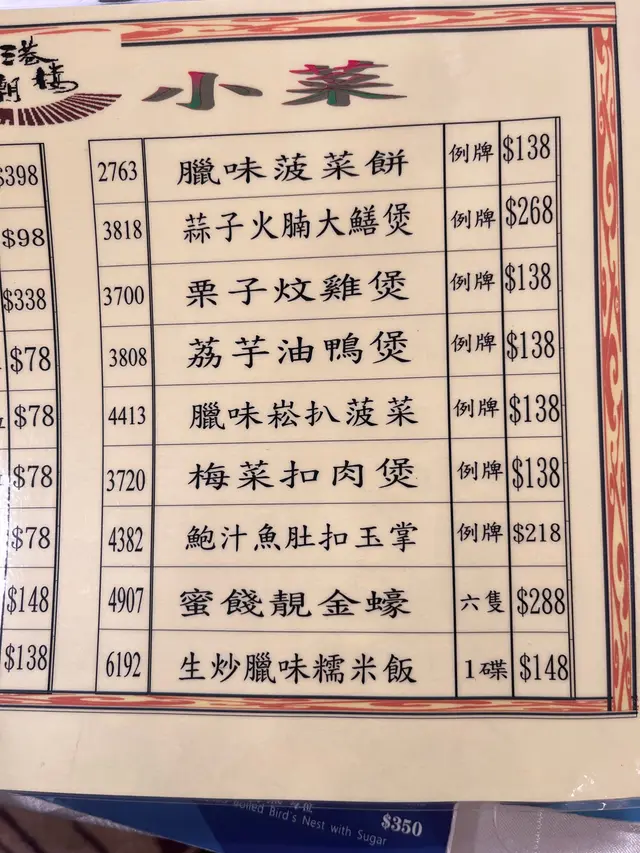 小菜
$398
$98
$338
$78
$78
$78
$78
$148
$138
2763 臘味菠菜餅 例牌 $138
3818 蒜子火腩大鱔煲 例牌 $268
3700 栗子炆雞煲 例牌 $138
3808 荔芋油鴨煲 例牌 $138
4413 臘味崧扒菠菜 例牌 $138
3720 梅菜扣肉煲 例牌 $138
4382 鮑汁魚肚扣玉掌 例牌 $218
4907 蜜餞靚金蠔 六隻 $288
6192 生炒臘味糯米飯 1碟 $148
Boiled Bird's Nest with Sugar $350